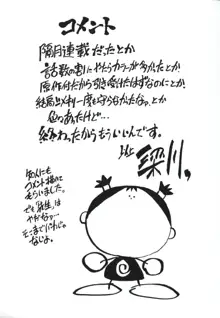 コメント
隔月連載だったとか
話数の割にやたらカラーが多かったとか
原作付だから引き受けたはずなのにとか
結局〆切一度も守らなかったなっとか
色々あったけど…
終わったからもういいんです。
以上
梁川,
知人にも
コメント描いて
もらいました。
でも「新生」は
やだなっ…
そこまでいわなく
なじょ。